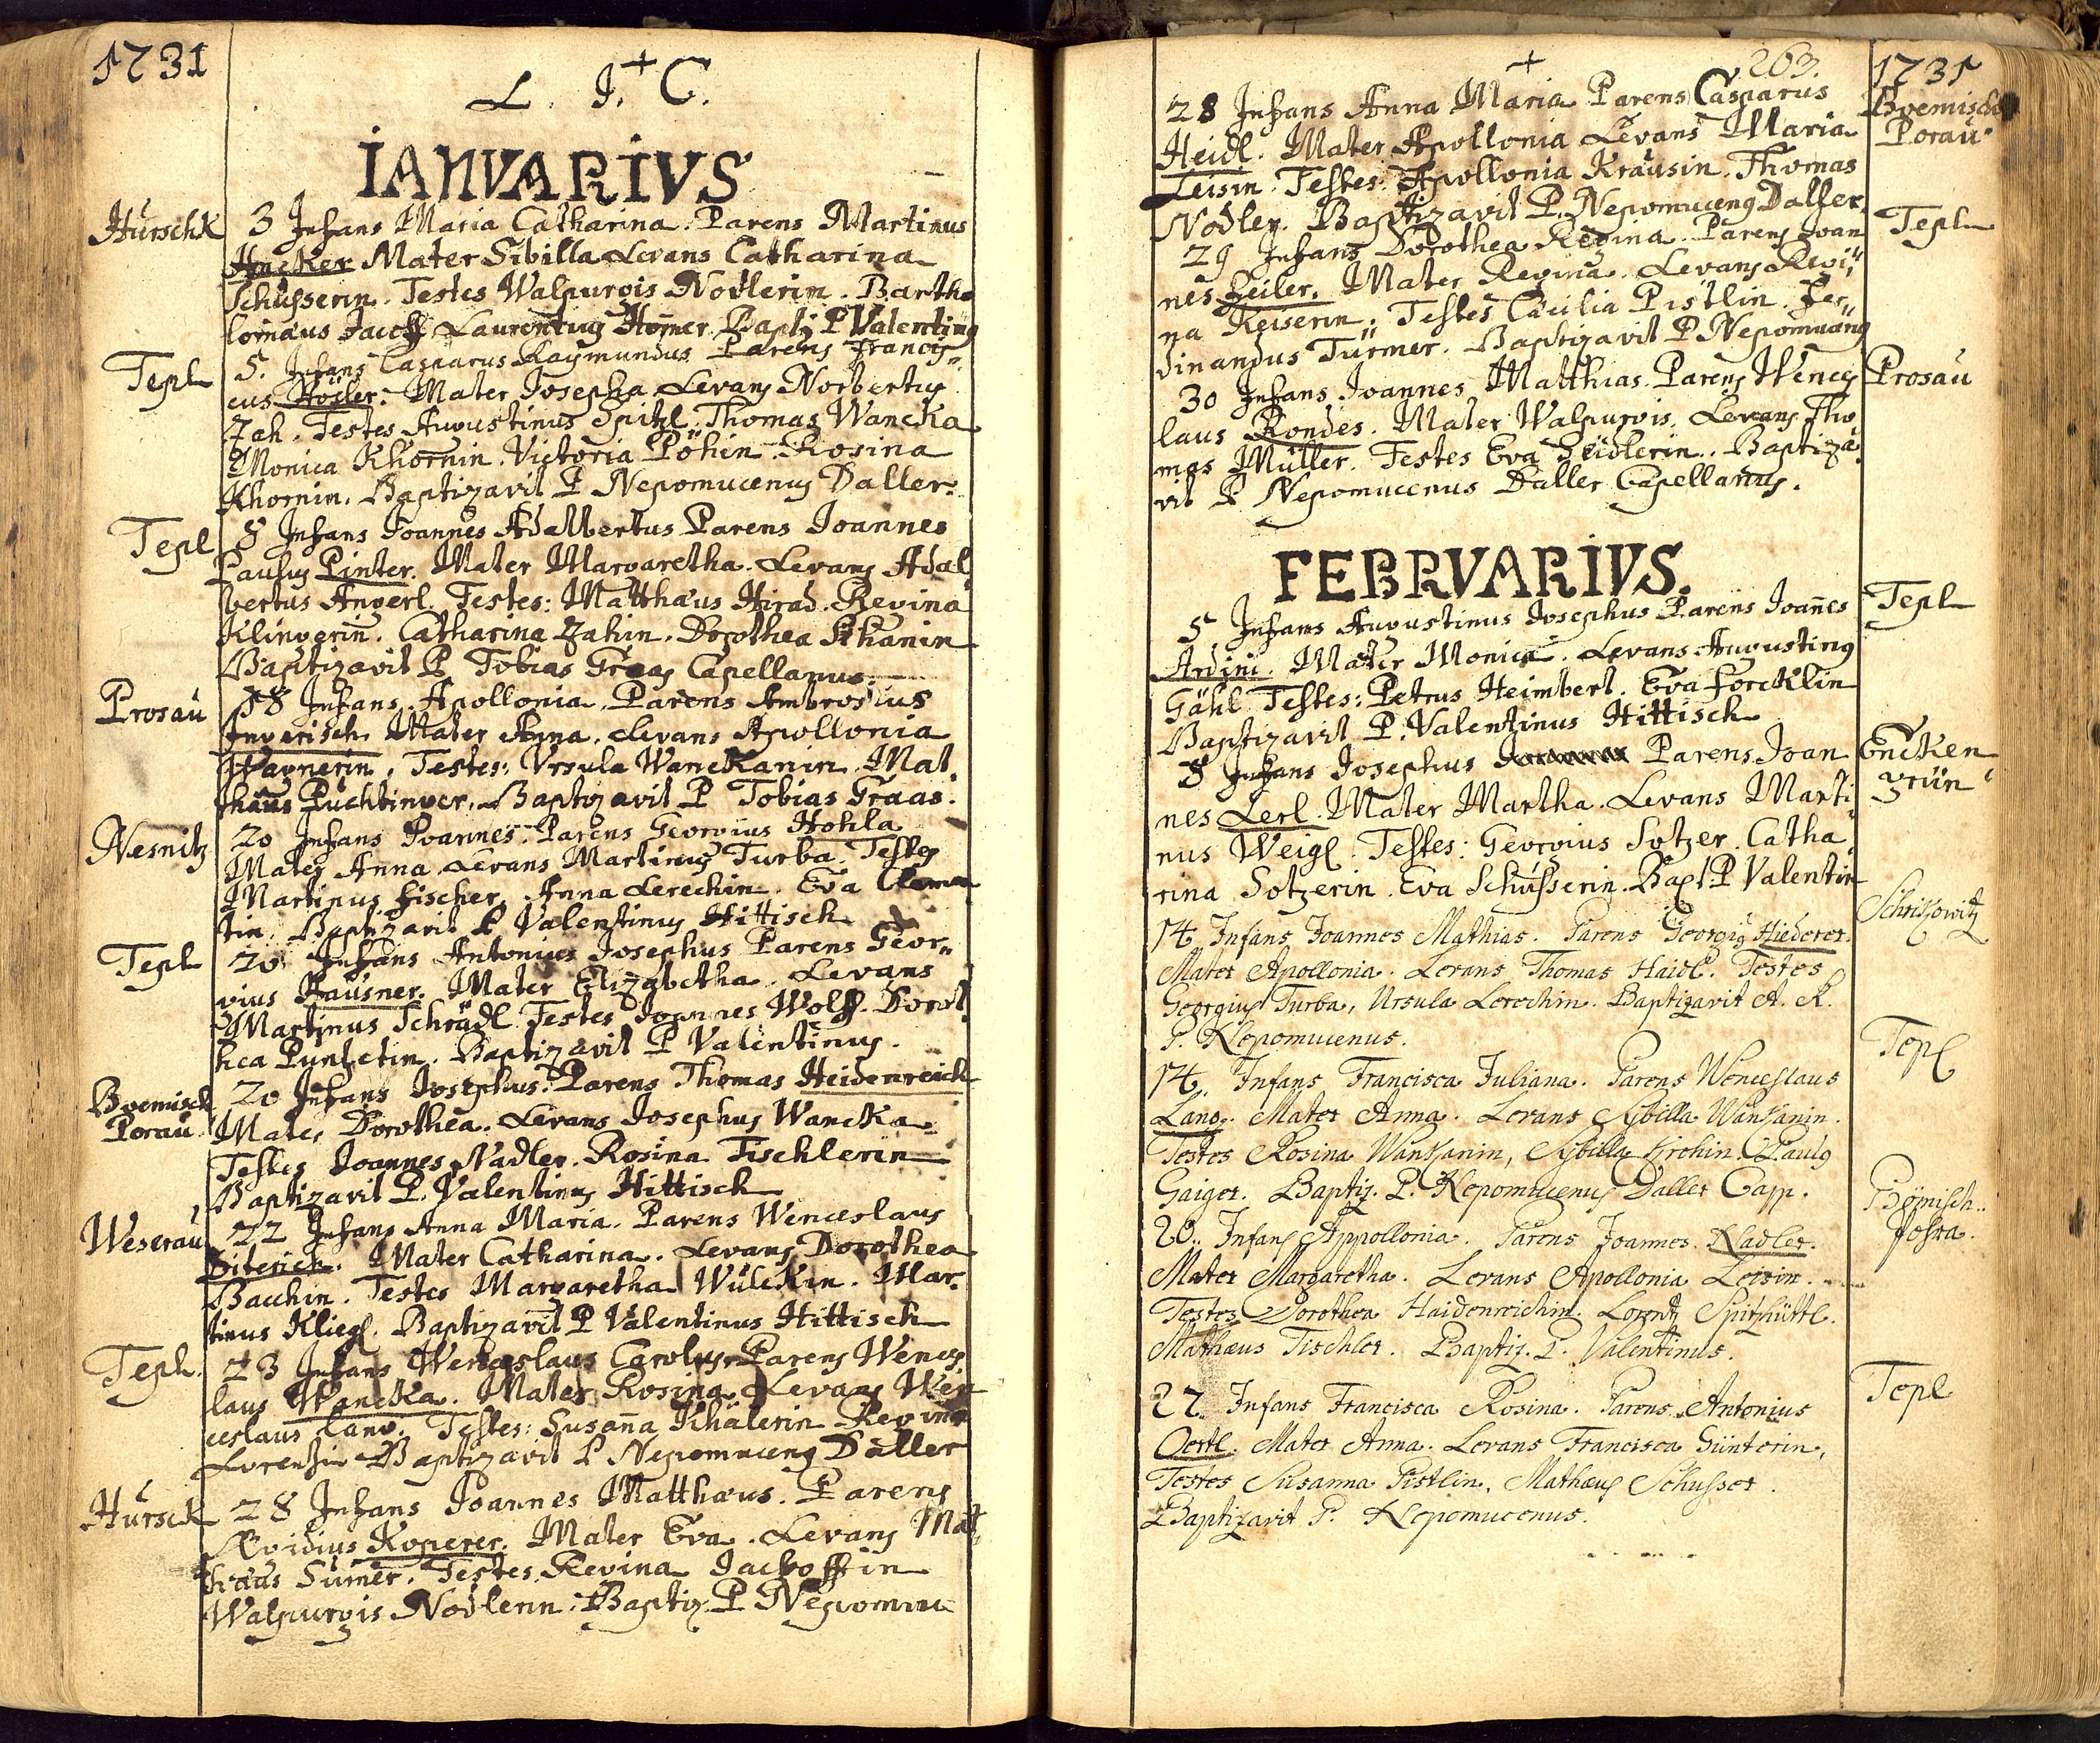 1731
L. J. C.
IANVARIVS
Hurschk
3 Infans Maria Catharina. Parens Martinus
Hucker Mater Sibilla Levans Catharina
Schusserin. Testes Walpurgis Nodlerin. Bartho
lomaus Jacob Laurentius Homer. Baptz P Valentinus
Tepl
5. Infans Casparus Raymundus Parens Francis
cus Hosler: Mater Josepha Levans Norbertus
Zah. Testes Augustinus Spitzl. Thomas Wancka
Monica Khornin. Victoria Pöhin. Rosina
Khornin. Baptizavit P Nepomucenus Daller.
Tepl
8 Infans Joannes Adalbertus Parens Joannes
Paulus Pinter. Mater Margaretha. Levans Adal
bertus Angerl. Testes: Matthæus Hirad. Regina
Klingerin. Catharina Zahin. Dorothea Khanin
Baptizavit P Tobias Graas Capellanus.
Prosau
18 Infans Apollonia. Parens Ambrosius
Ingerisch. Mater Anna. Levans Apollonia
Wagnerin. Testes: Vrsula Wanckanin. Mat
thæus Puchtinger. Baptizavit P Tobias Graas.
Nesnitz
20 Infans Joannes. Parens Georgius Hohla
Mater Anna Levans Martinus Turba. Testes
Martinus Fischer. Anna Lerechin. Eva
tin. Baptizavit P Valentinus Hittisch
Tepl
20 Infans Antonius Josephus Parens Geor
gius Hausner. Mater Elizabetha. Levans
Martinus Schrädl Testes Joannes Wolff. Dorot
hea Punletin. Baptizavit P Valentinus.
Boemisch
Porau
20 Infans Josephus. Parens Thomas Heidenreich
Mater Dorothea. Levans Josephus Wancka
Testes Joannes Nadler. Rosina Tischlerin
Baptizavit P. Valentinus Hittisch
Weserau
22 Infans Anna Maria. Parens Wenceslaus
Siterich. Mater Catharina. Levans Dorothea
Bacchin. Testes Margaretha Wülckin. Mar
tinus Kliegl. Baptizavit P Valentinus Hittisch
Tepl.
23 Infans Wenceslaus Carolus Parens Wences
laus Wancka. Mater Rosina Levans Wen
ceslaus Lang. Testes: Susañna Khälerin Regina
Lorentzin Baptizavit P Nepomucenus Daller
Hursck
28 Infans Joannes Matthæus. Parens
Ægidius Koperer. Mater Eva. Levans Mat
thæus Sumer. Testes Regina Jacboffin
Walpurgis Nodlerin. Baptiz. P Nepomuc
263.
1731
28 Infans Anna Maria Parens Casparus
Boemisch
Porau
Heidl. Mater Apollonia Levans Maria
Leisin. Testes: Apollonia Krausin. Thomas
Nodler. Baptizavit P. Nepomucenus Daller.
29 Infans Dorothea Regina. Parens Joan
Tepl
nes Zeiler. Mater Regina. Levans Regi
na Keiserin. Testes Cæcilia Pistlin. Fer
dinandus Türmer. Baptizavit P Nepomucenus
30 Infans Joannes Matthias. Parens Wences
Prosau
laus Rondes. Mater Walpurgis. Levans Tho
mas Müller. Testes Eva Seidlerin. Baptiza
vit P Nepomucenus Daller Capellanus.
FEBRVARIVS.
5 Infans Augustinus Josephus Parens Joañes
Tepl
Ardini. Mater Monica. Levans Augustinus
Gähl Testes: Petrus Heimberl. Eva Forcklin
Baptizavit P. Valentinus Hittisch
8 Infans Josephus Parens Joan
Encken
grün
nes Lerl. Mater Martha. Levans Marti
nus Weigl. Testes: Georgius Sotzer. Catha
rina Sotzerin. Eva Schusserin. Bapt P Valentin
14 Infans Joannes Mathias. Parens Georgius Hiederer.
Schrikowitz
Mater Apollonia. Levans Thomas Haidl. Testes
Georgius Turba, Ursula Lerechin. Baptizavit A. R.
P. Nepomucenus.
14. Infans Francisca Juliana. Parens Wenceslaus
Tepl
Lang. Mater Anna. Levans Sybilla Wankanin.
Testes Rosina Wankanin, Sybilla Krohin. Paulus
Gaiger. Baptiz. P. Nepomucenus Daller Capp.
20. Infans Appollonia. Parens Joannes Nadler.
Bömisch..
Mater Margaretha. Levans Apollonia Leisin.
Testes Dorothea Haidenreichin. Lorentz Spitzhüttl.
Mathæus Tischler. Baptiz. P. Valentinus.
22. Infans Francisca Rosina. Parens Antonius
Tepl
Oertl. Mater Anna. Levans Francisca Günterin,
Testes Susanna Pistlin, Mathæus Schusser.
Baptizavit P. Nepomucenus.